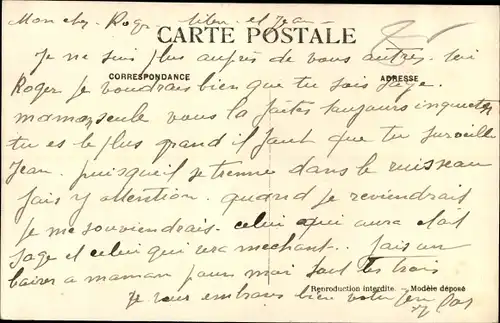 Mon cher Roger et Jean
CARTE POSTALE
Je ne suis plus auprès de vous autres. toi
CORRESPONDANCE
ADRESSE
Roger je voudrais bien que tu sois sage.
maman seule vous la faites toujours inquieter
tu es le plus grand il faut que tu surveille
Jean. puisqu'il se trenne dans le ruisseau
fais y attention. quand je reviendrai
je me souviendrais. celui qui aura etait
sage et celui qui sera mechant. fais un
baiser a maman pour moi tout les trois
Reproduction interdite. — Modèle déposé
Je vous embrasse bien votre